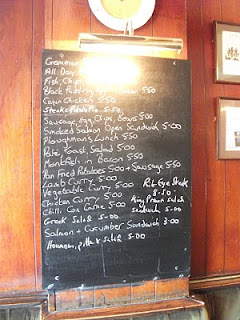 All Day
Fish, Chips
Black Pudding, Bacon 5.50
Cabin Chicken 5.50
Steak
Sausage, Egg, Chips, Beans 5.00
Smoked Salmon Open Sandwich 5.00
Ploughmans Lunch 5.50
Pate, Toast, Salad 5.00
Monkfish in Bacon 5.50
Pan Fried Potatoes 5.00 + Sausage 5.50
Lamb Curry 5.00
Vegetable Curry 5.00
Chicken Curry 5.00
Chilli Con Carne 5.00
Greek Salad 5.00
Salmon + Cucumber Sandwich 5.00
Houmous, pitta & Salad 5.00
Rib Eye Steak
Prawn Salad
Sandwich 5.00